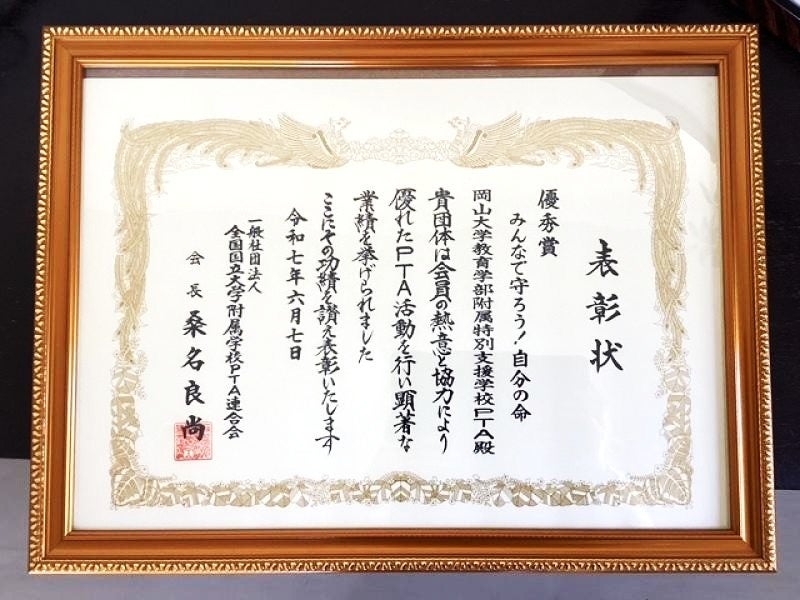 表彰状
優秀賞
みんなで守ろう！自分の命
岡山大学教育学部附属特別支援学校PTA殿
貴団体は会員の熱意と協力により
優れたPTA活動を行い顕著な
業績を挙げられました
ここにその功績を讃え表彰いたします
令和七年六月七日
一般社団法人
全国国立大学附属学校PTA連合会
会長 桑名良尚